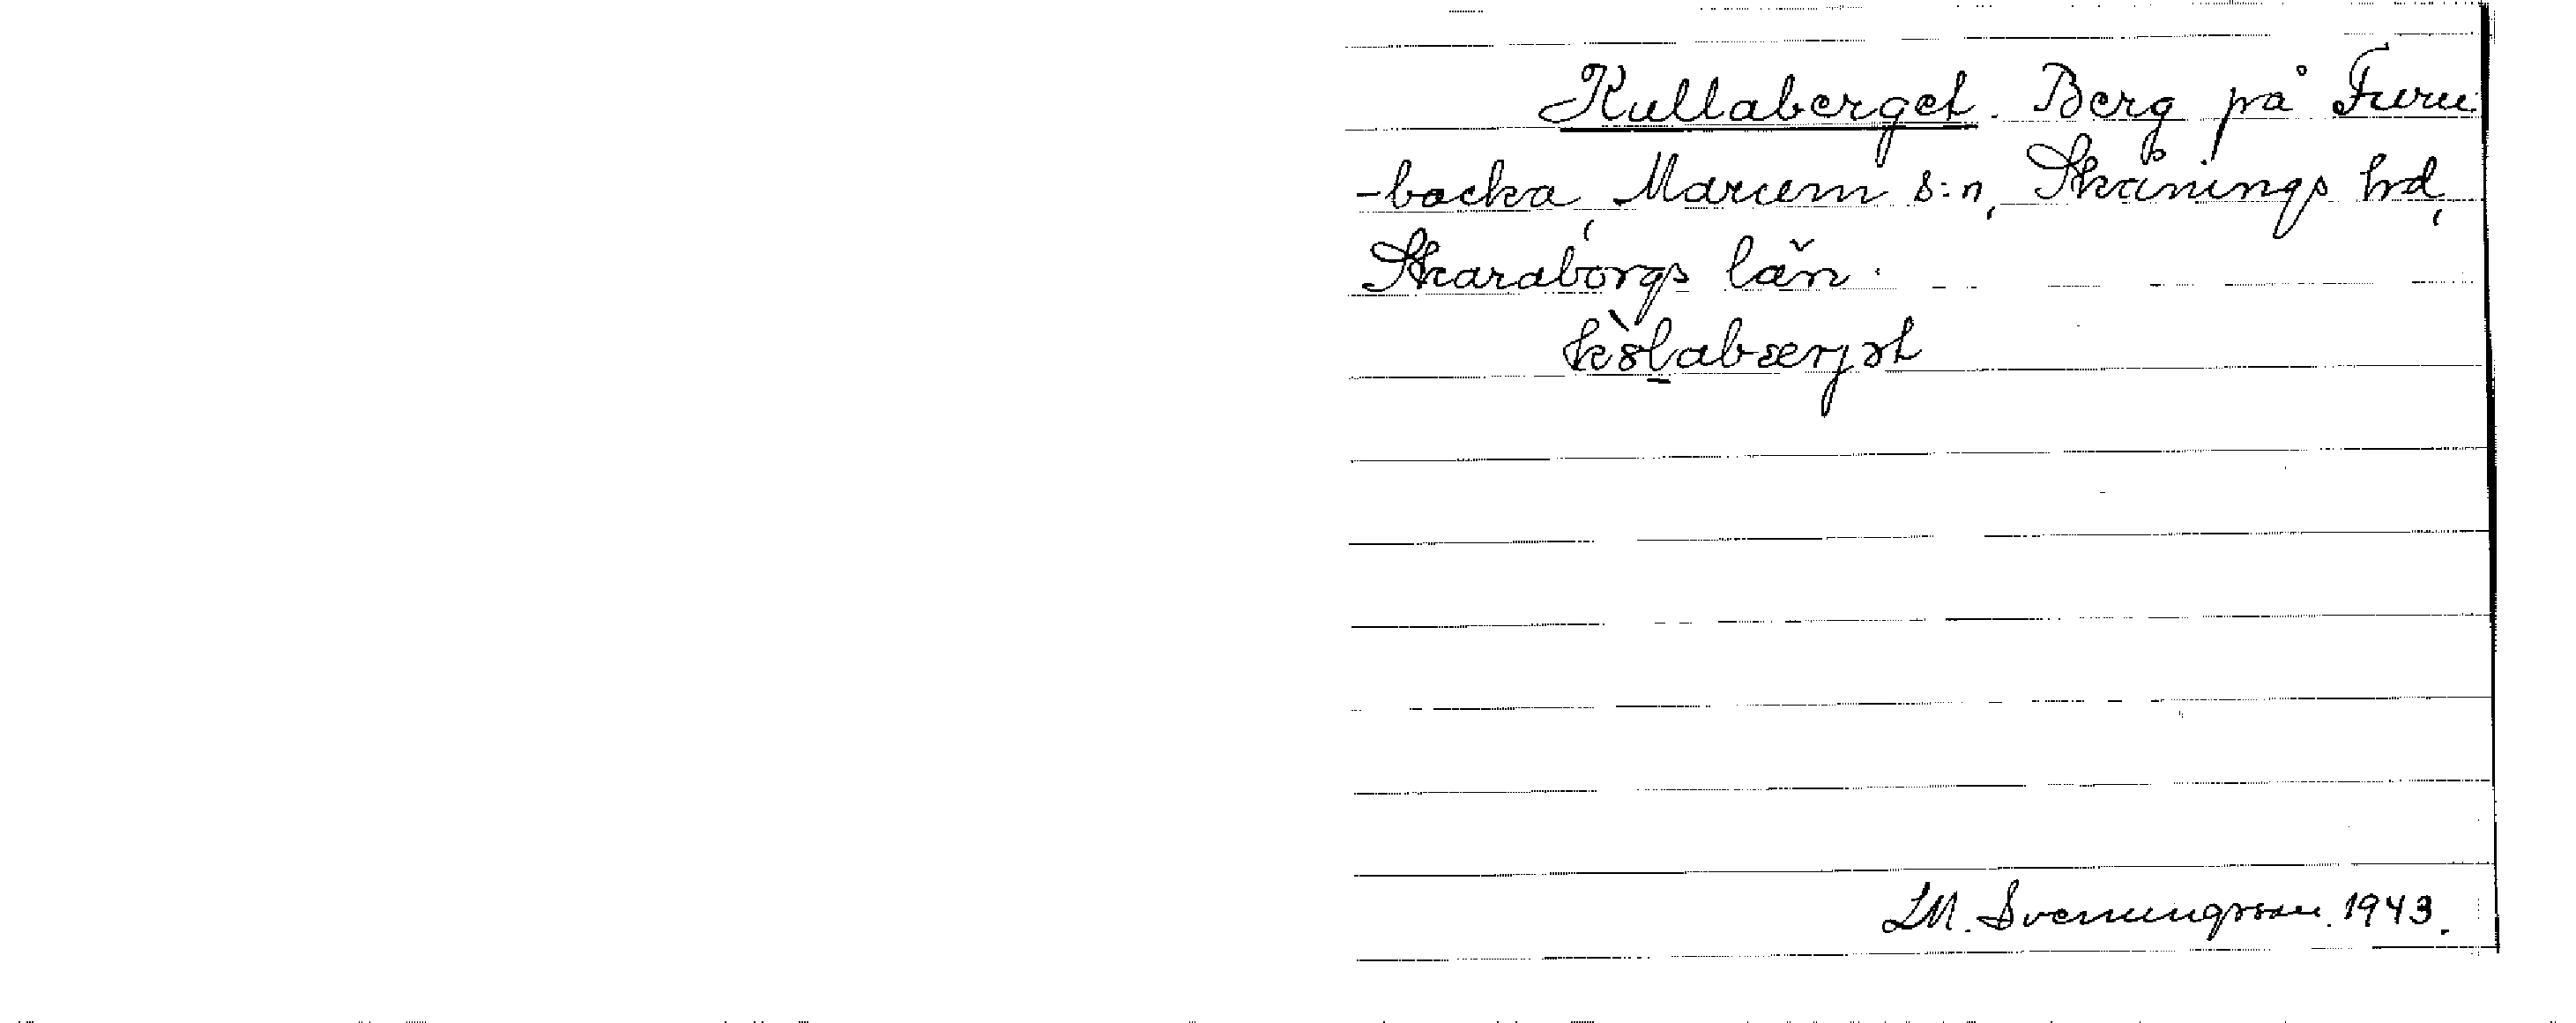 Kullaberget. Berg på Furu
-backa, Marum s:n, Skånings hd,
Skaraborgs län.
kòl̲abærjət
LM. Svenungsson. 1943.